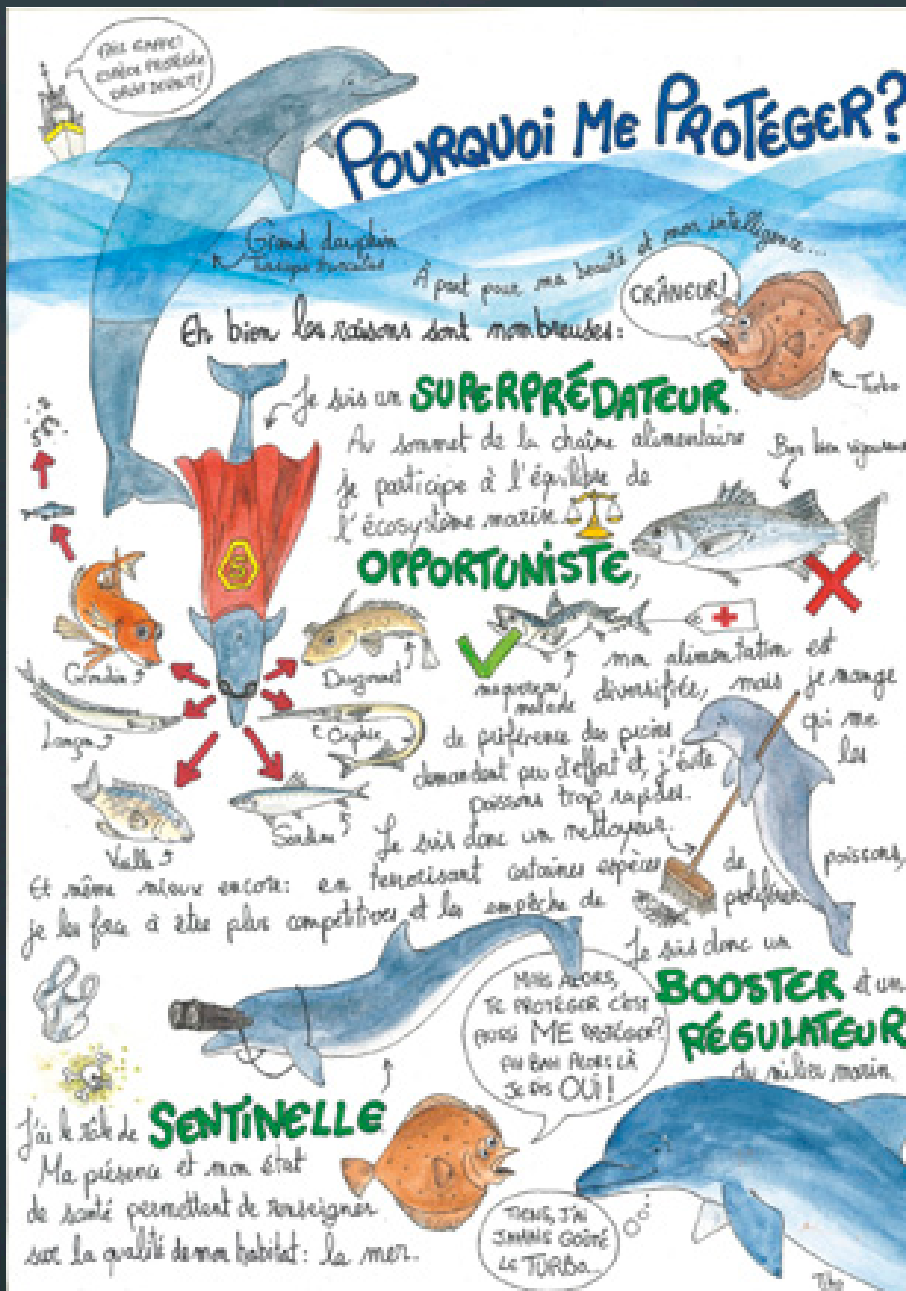 FAIS GAFFE!
ESPÈCE PROTÉGÉE
DROIT DEVANT!
POURQUOI ME PROTÉGER?
Grand dauphin
Tursiops truncatus
À part pour ma beauté et mon intelligence...
CRÂNEUR!
Turbo
Eh bien les raisons sont nombreuses:
Je suis un SUPERPRÉDATEUR.
Au sommet de la chaîne alimentaire
je participe à l'équilibre de
l'écosystème marin.
Bar bien vigoureux
OPPORTUNISTE,
S
Grondin
Dragonet
Lançon
Orphie
Vieille
Sardine
maquereau
malade
mon alimentation est
diversifiée, mais je mange
de préférence des proies qui me
demandent peu d'effort et, j'évite les
poissons trop rapides.
Je suis donc un nettoyeur.
Et même mieux encore: en terrorisant certaines espèces de poissons,
je les force à être plus compétitives et les empêche de proliférer.
Je suis donc un
BOOSTER et un
RÉGULATEUR
du milieu marin
MAIS ALORS,
TE PROTÉGER C'EST
AUSSI ME PROTÉGER?
AH BAH ALORS LÀ
JE DIS OUI!
J'ai le rôle de SENTINELLE
Ma présence et mon état
de santé permettent de renseigner
sur la qualité de mon habitat: la mer.
TIENS, J'AI
JAMAIS GOÛTÉ
LE TURBO...